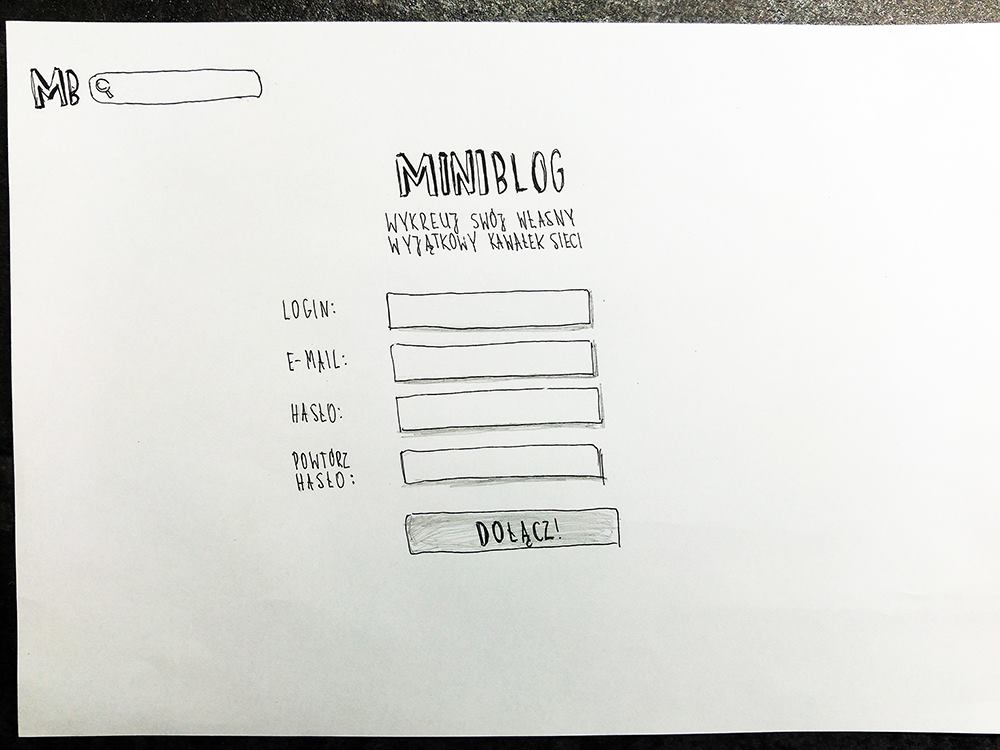 MB
MINIBLOG
WYKREUJ SWÓJ WŁASNY
WYJĄTKOWY KAWAŁEK SIECI
LOGIN:
E-MAIL:
HASŁO:
POWTÓRZ
HASŁO:
DOŁĄCZ!